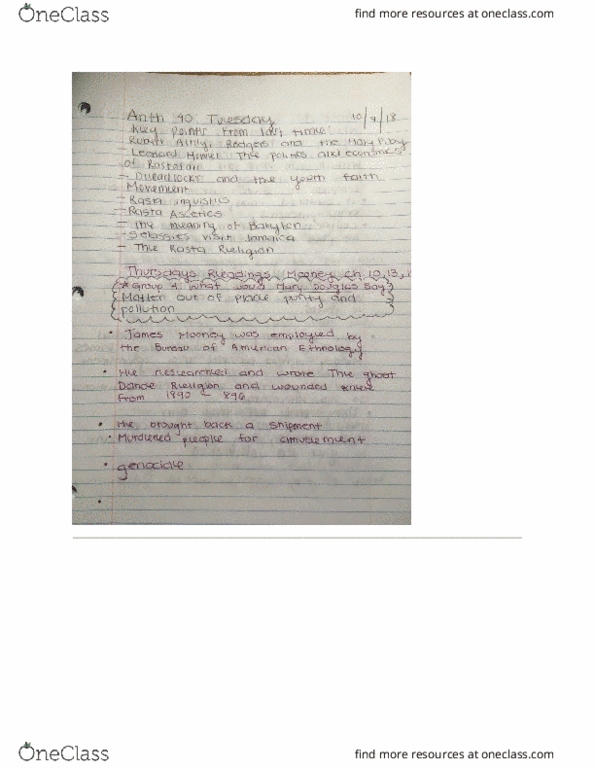 OneClass
find more resources at oneclass.com
Anth 90: Tuesday
10/9/18
Key points from last time:
Robert Athlyi Rodgers and the Holy Piby
- Leonard Howell The politics and economics
of Rastafari
- Dreadlocks and the youth faith
Movement
- Rasta linguistics
- Rasta Ascetics
- The meaning of Babylon
- Selassies visit Jamaica
- The Rasta Religion
Thursdays Readings Mooney ch. 10, 13,
* Group 4: what would Mary Douglas Say?
Matter out of place purity and
pollution
• James Mooney was employed by
the Bureau of American Ethnology
• He researched and wrote The ghost
Dance Religion and wounded knee
from 1890 - 896
• He brought back a shipment
• Murdered people for amusement
• genocide
•
OneClass
find more resources at oneclass.com